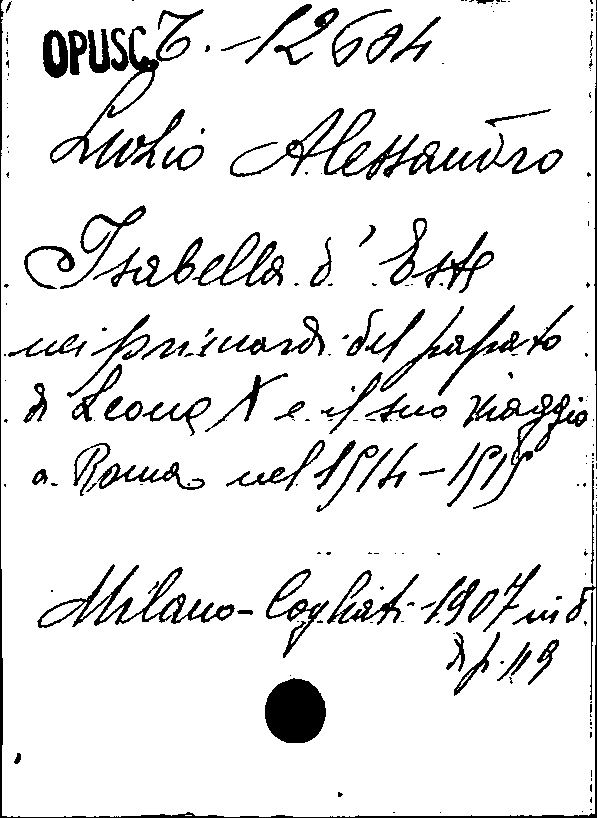 OPUSC. T. - 12684
Luzio Alessandro
Isabella d'Este
nei primordi del papato
di Leone X e il suo viaggio
a Roma nel 1514-1515
Milano - Cogliati - 1907 in 8
di p. 119